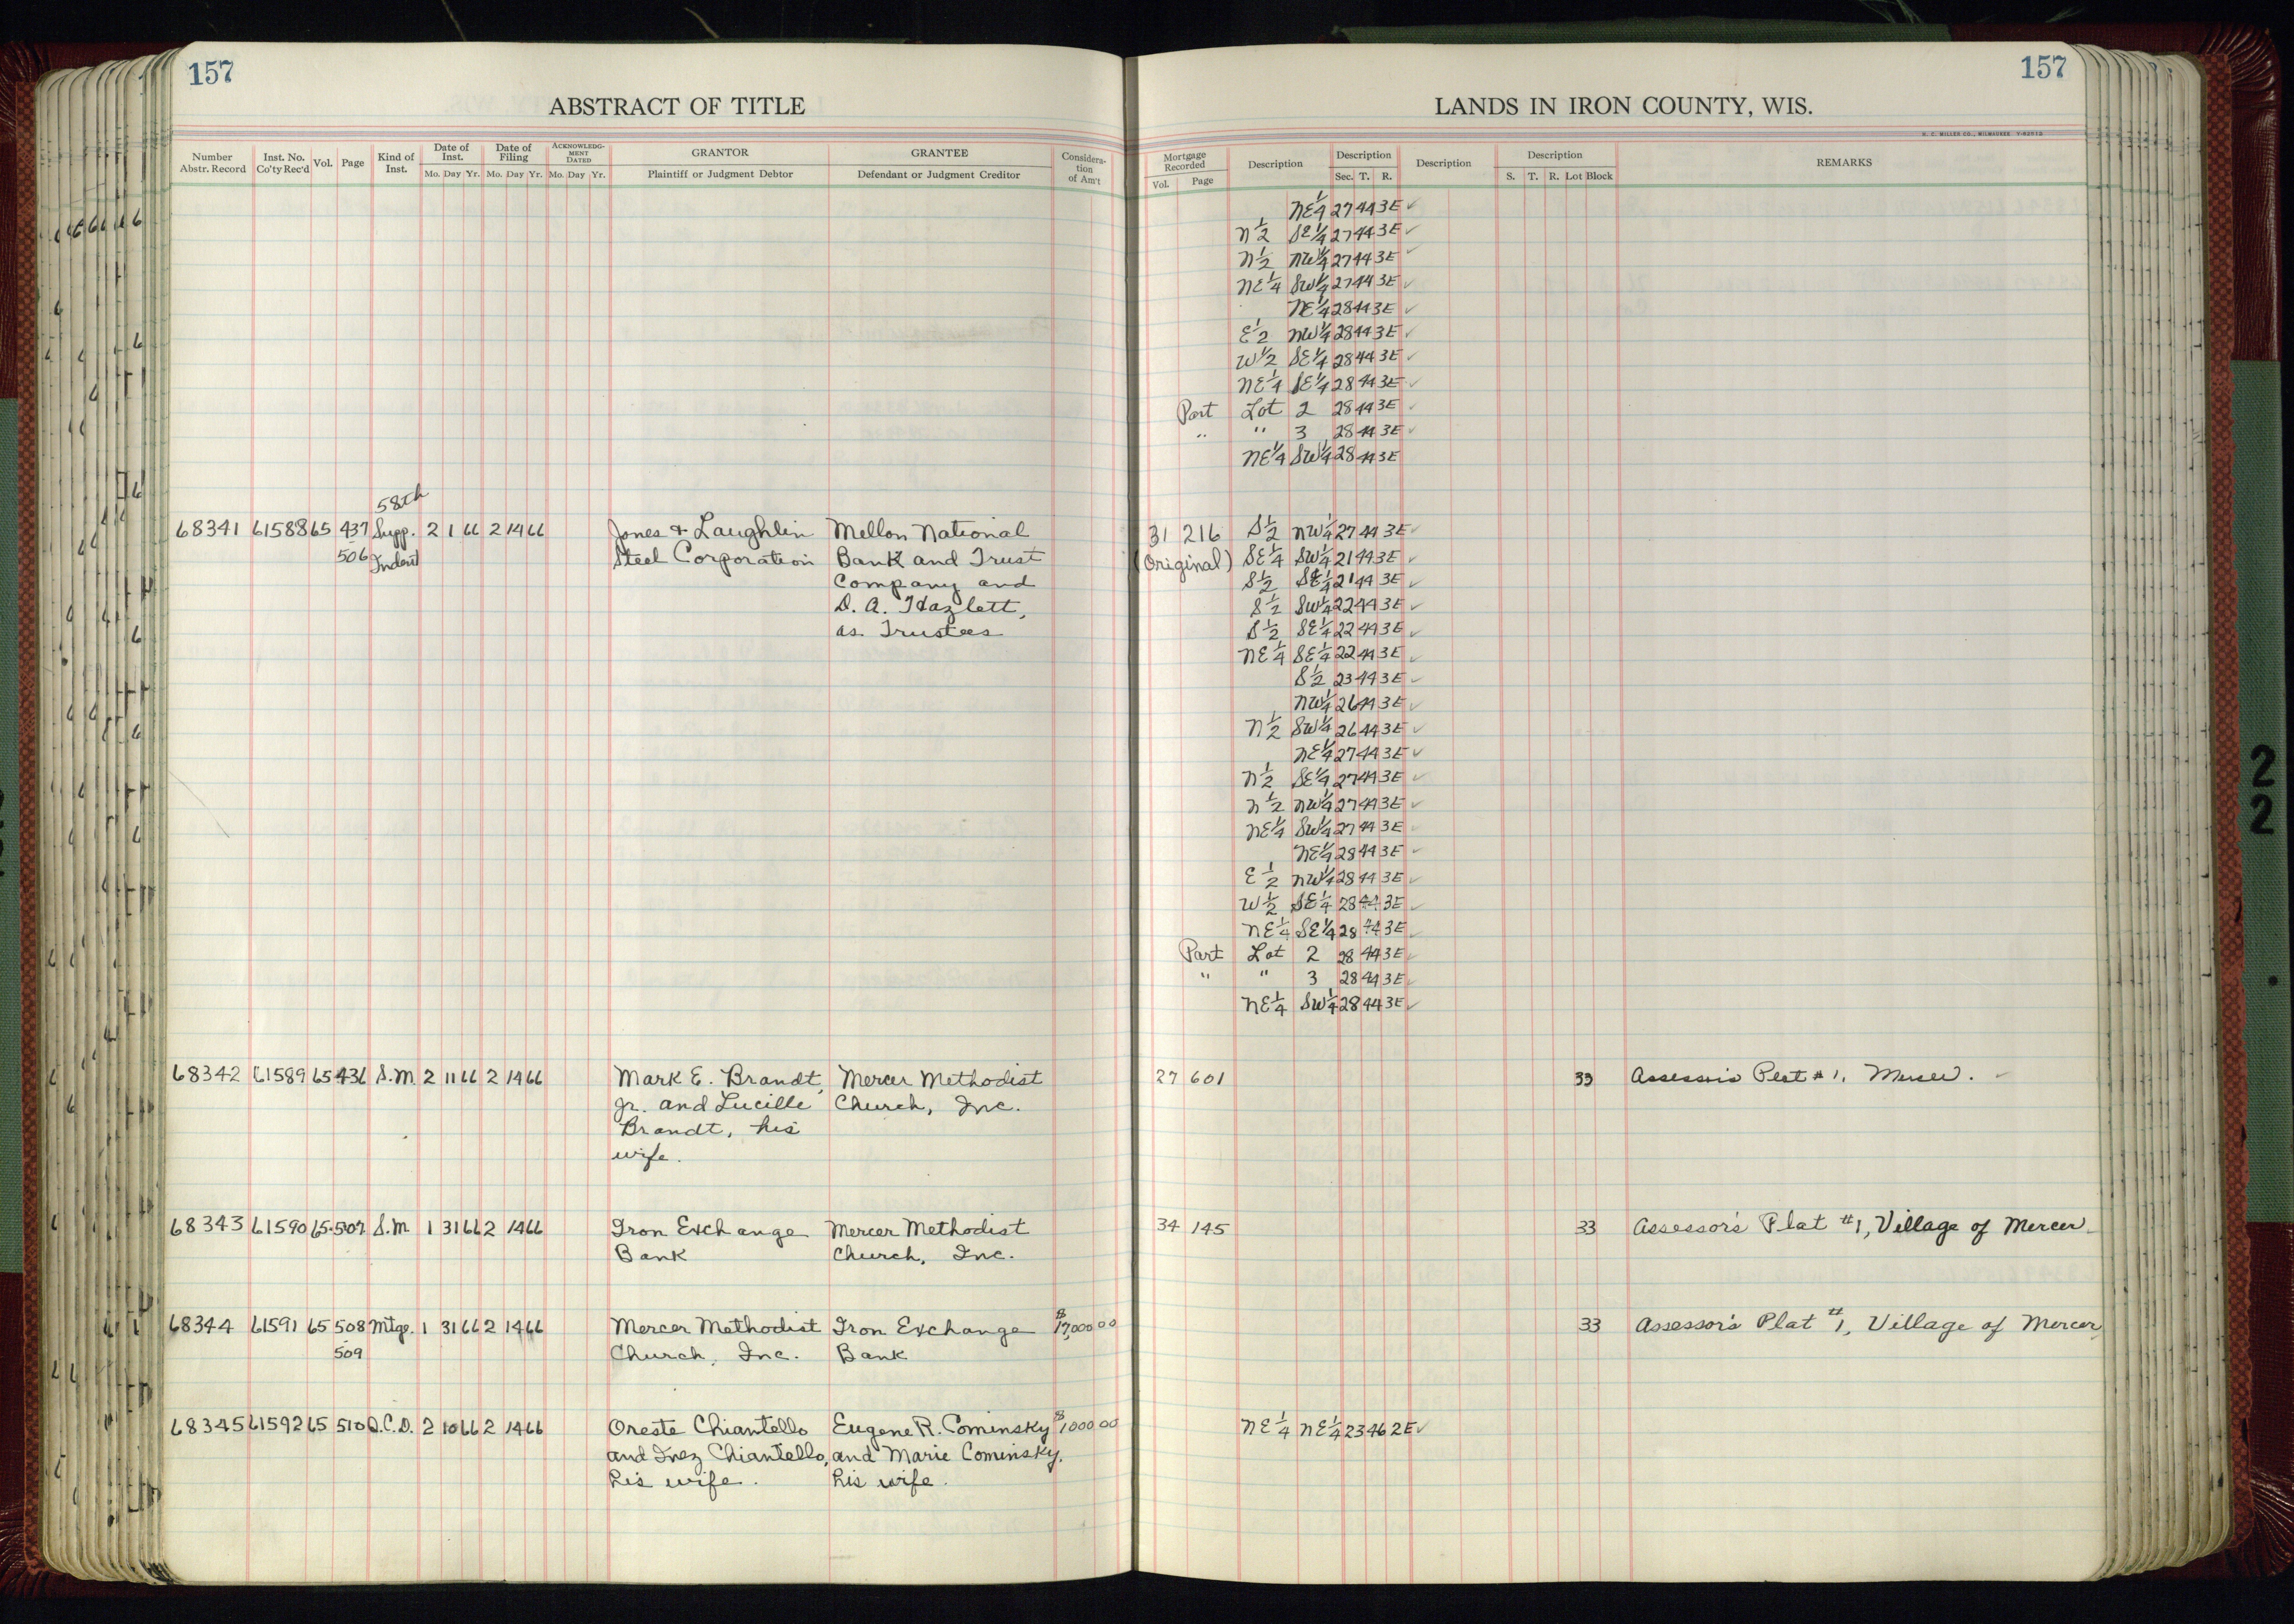 157
157
ABSTRACT OF TITLE
LANDS IN IRON COUNTY, WIS.
H. C. MILLER CO., MILWAUKEE
Number Abstr. Record
Inst. No. Co'ty Rec'd
Vol.
Page
Kind of Inst.
Date of Inst.
Mo. Day Yr.
Date of Filing
Mo. Day Yr.
ACKNOWLEDGMENT DATED
Mo. Day Yr.
GRANTOR
Plaintiff or Judgment Debtor
GRANTEE
Defendant or Judgment Creditor
Consideration of Am't
Mortgage Recorded
Vol. Page
Description
Description
Sec. T. R.
Description
Description
S. T. R. Lot Block
REMARKS
NE 1/4 27 44 3E ✓
N 1/2 SE 1/4 27 44 3E ✓
N 1/2 NW 1/4 27 44 3E ✓
NE 1/4 SW 1/4 27 44 3E ✓
NE 1/4 28 44 3E ✓
E 1/2 NW 1/4 28 44 3E ✓
W 1/2 SE 1/4 28 44 3E ✓
NE 1/4 SE 1/4 28 44 3E ✓
Part Lot 2 28 44 3E ✓
" " 3 28 44 3E ✓
NE 1/4 SW 1/4 28 44 3E
58th
68341 61588 65 437 Supp. 2 1 66 2 14 66 Jones & Laughlin Mellon National 31 216 S 1/2 NW 1/4 27 44 3E ✓
506 Indent Steel Corporation Bank and Trust (Original) SE 1/4 SW 1/4 21 44 3E ✓
Company and S 1/2 SE 1/4 21 44 3E ✓
D. A. Hazlett, S 1/2 SW 1/4 22 44 3E ✓
as Trustees S 1/2 SE 1/4 22 44 3E ✓
NE 1/4 SE 1/4 22 44 3E ✓
S 1/2 23 44 3E ✓
NW 1/4 26 44 3E ✓
N 1/2 SW 1/4 26 44 3E ✓
NE 1/4 27 44 3E ✓
N 1/2 SE 1/4 27 44 3E ✓
N 1/2 NW 1/4 27 44 3E ✓
NE 1/4 SW 1/4 27 44 3E ✓
NE 1/4 28 44 3E ✓
E 1/2 NW 1/4 28 44 3E ✓
W 1/2 SE 1/4 28 44 3E ✓
NE 1/4 SE 1/4 28 44 3E ✓
Part Lot 2 28 44 3E ✓
" " 3 28 44 3E ✓
NE 1/4 SW 1/4 28 44 3E ✓
68342 61589 65 436 S.M. 2 11 66 2 14 66 Mark E. Brandt, Mercer Methodist 27 601 33 Assessor's Plat #1, Mercer. ✓
Jr. and Lucille Church, Inc.
Brandt, his
wife.
68343 61590 65 507 S.M 1 31 66 2 14 66 Iron Exchange Mercer Methodist 34 145 33 Assessor's Plat #1, Village of Mercer
Bank Church, Inc.
68344 61591 65 508 Mtge. 1 31 66 2 14 66 Mercer Methodist Iron Exchange $17,000 00 33 Assessor's Plat #1, Village of Mercer
509 Church, Inc. Bank
68345 61592 65 510 Q.C.D. 2 10 66 2 14 66 Oreste Chiantello Eugene R. Cominsky $1000 00 NE 1/4 NE 1/4 23 46 2E ✓
and Inez Chiantello, and Marie Cominsky,
his wife. his wife.
2
2